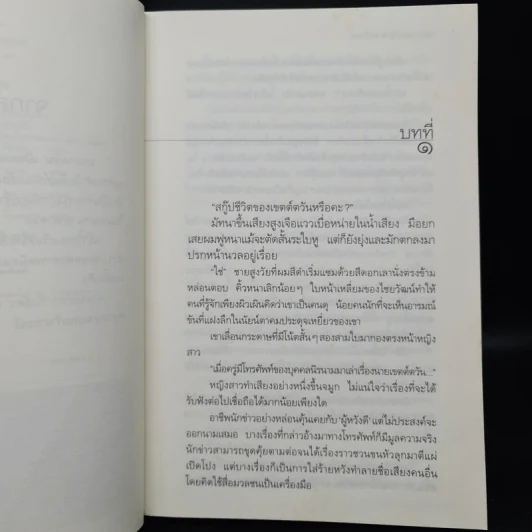 บทที่
๑
“สกู๊ปชีวิตของเขตต์ตวันหรือคะ?”
มัทนาขึ้นเสียงสูงเจือแววเบื่อหน่ายในน้ำเสียง มือยก
เสยผมฟูหนาแม้จะตัดสั้นระใบหู แต่ก็ยังยุ่งและมักตกลงมา
ปรกหน้านวลอยู่เรื่อย
“ใช่” ชายสูงวัยที่ผมสีดำเริ่มแซมด้วยสีดอกเลานั่งตรงข้าม
หล่อนตอบ คิ้วหนาเลิกน้อยๆ ใบหน้าเหลี่ยมของไชยวัฒน์ทำให้
คนที่รู้จักเพียงผิวเผินคิดว่าเขาเป็นคนดุ น้อยคนนักที่จะเห็นอารมณ์
ขันที่แฝงลึกในนัยน์ตาคมประดุจเหยี่ยวของเขา
เขาเลื่อนกระดาษที่มีโน้ตสั้นๆ สองสามใบมากองตรงหน้าหญิง
สาว
“เมื่อครู่มีโทรศัพท์ของบุคคลนิรนามมาเล่าเรื่องนายเขตต์ตวัน...”
หญิงสาวทำเสียงอย่างหนึ่งขึ้นจมูก ไม่แน่ใจว่าเรื่องที่จะได้
รับฟังต่อไปเชื่อถือได้มากน้อยเพียงใด
อาชีพนักข่าวอย่างหล่อนคุ้นเคยกับ ‘ผู้หวังดี’ แต่ไม่ประสงค์จะ
ออกนามเสมอ บางเรื่องที่กล่าวอ้างมาทางโทรศัพท์ก็มีมูลความจริง
นักข่าวสามารถขุดคุ้ยตามต่อจนได้เรื่องราวชวนขนหัวลุกมาตีแผ่
เปิดโปง แต่บางเรื่องก็เป็นการใส่ร้ายหวังทำลายชื่อเสียงคนอื่น
โดยคิดใช้สื่อมวลชนเป็นเครื่องมือ